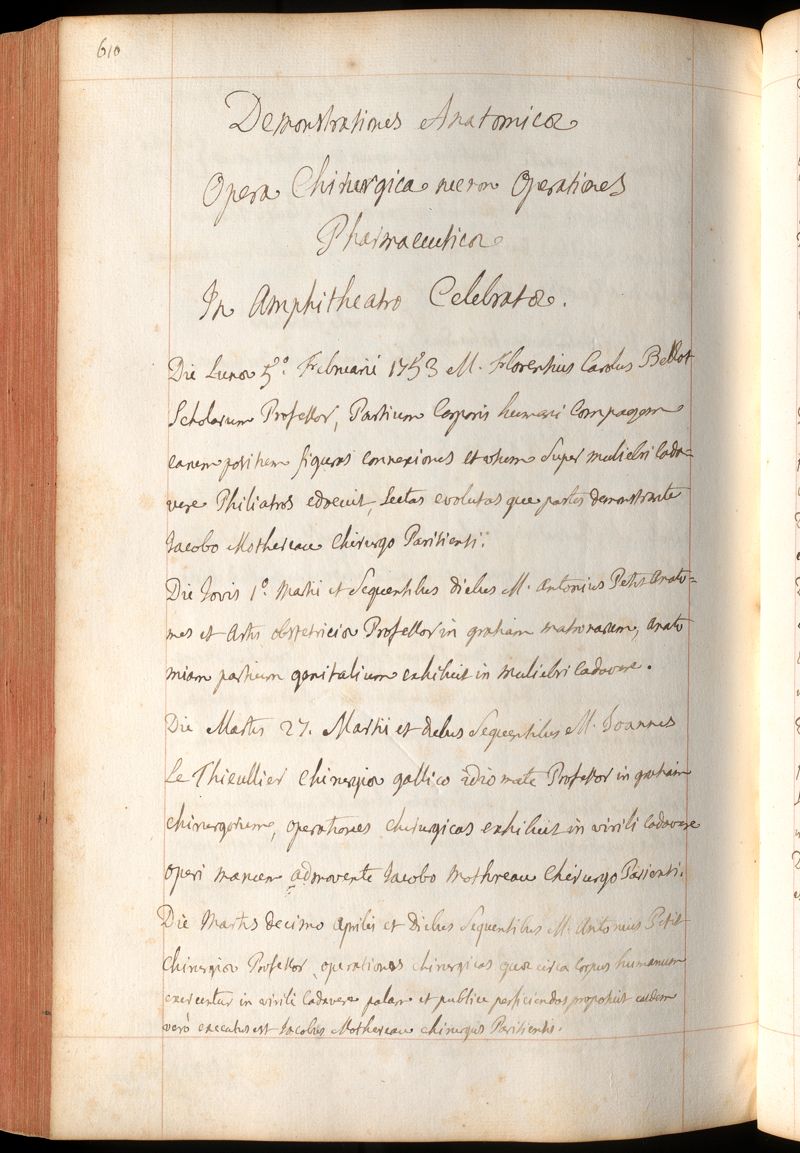 610
Demonstrationes Anatomicæ
Opera Chirurgica necnon Operationes
Pharmaceuticæ
In Amphitheatro Celebratæ.
Die Lunæ 5.º Februarii 1753 M. Florentius Carolus Bellot
Scholarum Professor, Partium Corporis humani Compagem
earum positum figuras connexiones et usum Super muliebri Cada=
vere Philiatros edocuit, Sectas evolutas que partes demonstrante
Jacobo Mothereau Chirurgo Parisiensi.
Die Jovis 1.º Martii et Sequentibus diebus M. Antonius Petit Anato=
mes et Artis obstetriciæ Professor in gratiam matronarum, anato
miam partium genitalium exhibuit in muliebri Cadavere.
Die Martis 27. Martii et diebus Sequentibus M. Joannes
Le Thieullier Chirurgiæ gallico idiomate Professor in gratiam
chirurgorum, operationes chirurgicas exhibuit in virili Cadavere
operi manum admovente Jacobo Mothreau Chirurgo Parisienti.
Die Martis decimo aprilis et Diebus Sequentibus M. Antonius Petit
Chirurgiæ Professor, operationes chirurgicas quæ circa Corpus humanum
exercentur in virili Cadavere palam et publice perficiendas proposuit easdem
verò executus est Jacobus Mothereau chirurgus Parisiensis.